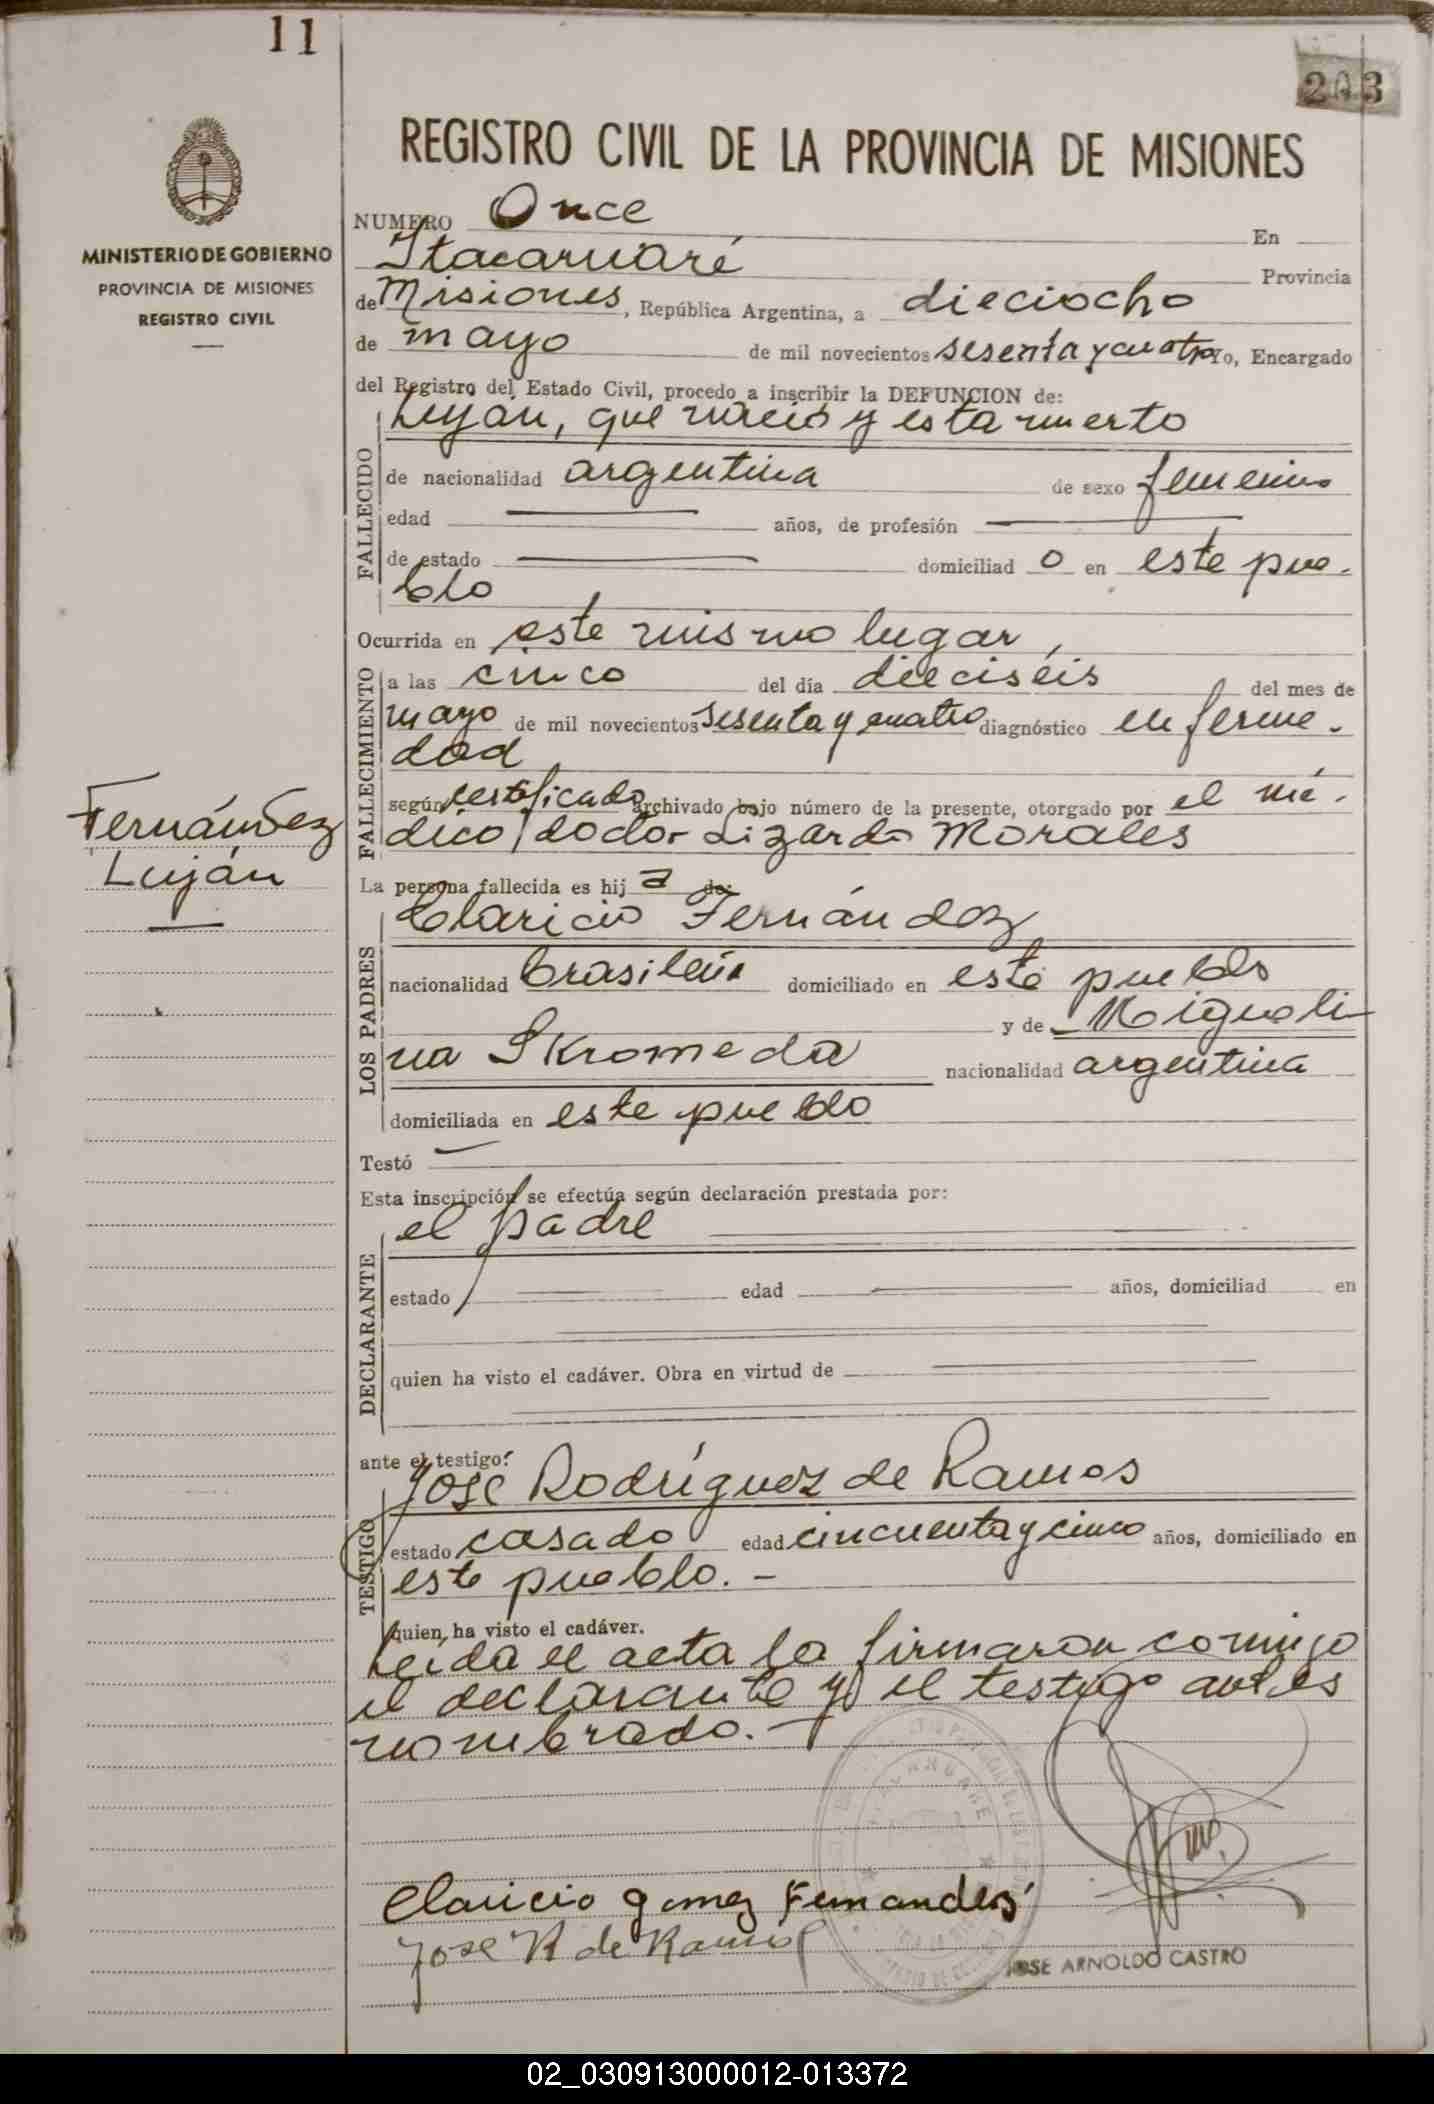 11
203
REGISTRO CIVIL DE LA PROVINCIA DE MISIONES
MINISTERIO DE GOBIERNO
PROVINCIA DE MISIONES
REGISTRO CIVIL
NUMERO Once En
Itacaruaré Provincia
de Misiones, República Argentina, a dieciocho
de mayo de mil novecientos sesenta y cuatro Yo, Encargado
del Registro del Estado Civil, procedo a inscribir la DEFUNCION de:
FALLECIDO
Luján, que nació y esta muerto
de nacionalidad argentina de sexo femenino
edad años, de profesión
de estado domiciliad o en este pue-
blo
Ocurrida en este mismo lugar,
FALLECIMIENTO
a las cinco del día dieciseis del mes de
mayo de mil novecientos sesenta y cuatro diagnóstico enferme-
dad
según certificado archivado bajo número de la presente, otorgado por el mé-
dico doctor Lizardo Morales
Fernández
Luján
La persona fallecida es hij a de:
LOS PADRES
Claricio Fernández
nacionalidad brasileña domiciliado en este pueblo
y de Migueli
na Skromeda nacionalidad argentina
domiciliada en este pueblo
Testó
Esta inscripción se efectúa según declaración prestada por:
DECLARANTE
el padre
estado edad años, domiciliad en
quien ha visto el cadáver. Obra en virtud de
ante el testigo:
TESTIGO
José Rodríguez de Ramos
estado casado edad cincuenta y cinco años, domiciliado en
este pueblo. -
quien ha visto el cadáver.
Leida el acta la firmaron conmigo
el declarante y el testigo antes
nombrado. -
Claricio gomez Fernandes
Jose R de Ramos
JOSE ARNOLDO CASTRO
02_030913000012-013372